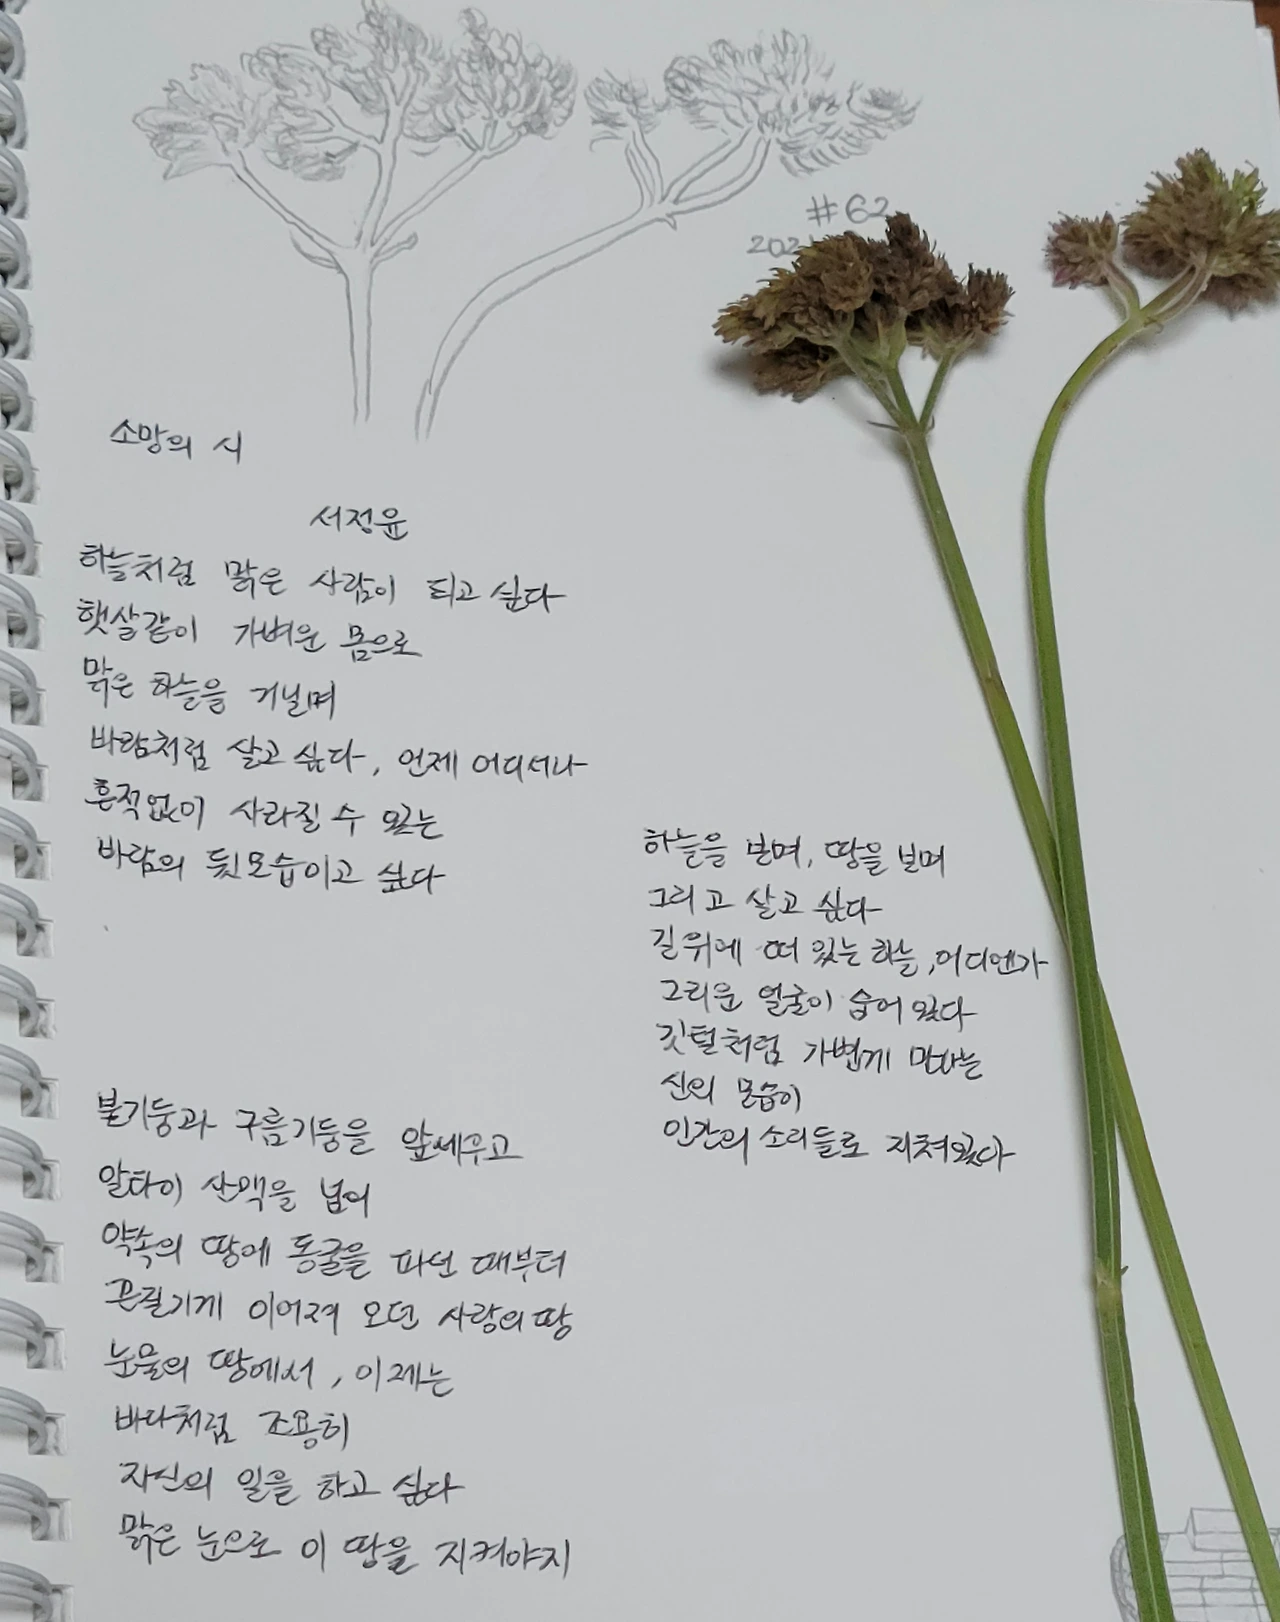 #62
202
소망의 시
서정윤
하늘처럼 맑은 사람이 되고 싶다
햇살같이 가벼운 몸으로
맑은 하늘을 거닐며
바람처럼 살고 싶다, 언제 어디서나
흔적없이 사라질 수 있는
바람의 뒷모습이고 싶다
하늘을 보며, 땅을 보며
그리고 살고 싶다
길 위에 떠 있는 하늘, 어디엔가
그리운 얼굴이 숨어 있다
깃털처럼 가볍게 만나는
신의 모습이
인간의 소리들로 지쳐있다
불기둥과 구름기둥을 앞세우고
알타이 산맥을 넘어
약속의 땅에 동굴을 파던 때부터
끈질기게 이어져 오던 사랑의 땅
눈물의 땅에서, 이제는
바다처럼 조용히
자신의 일을 하고 싶다
맑은 눈으로 이 땅을 지켜야지